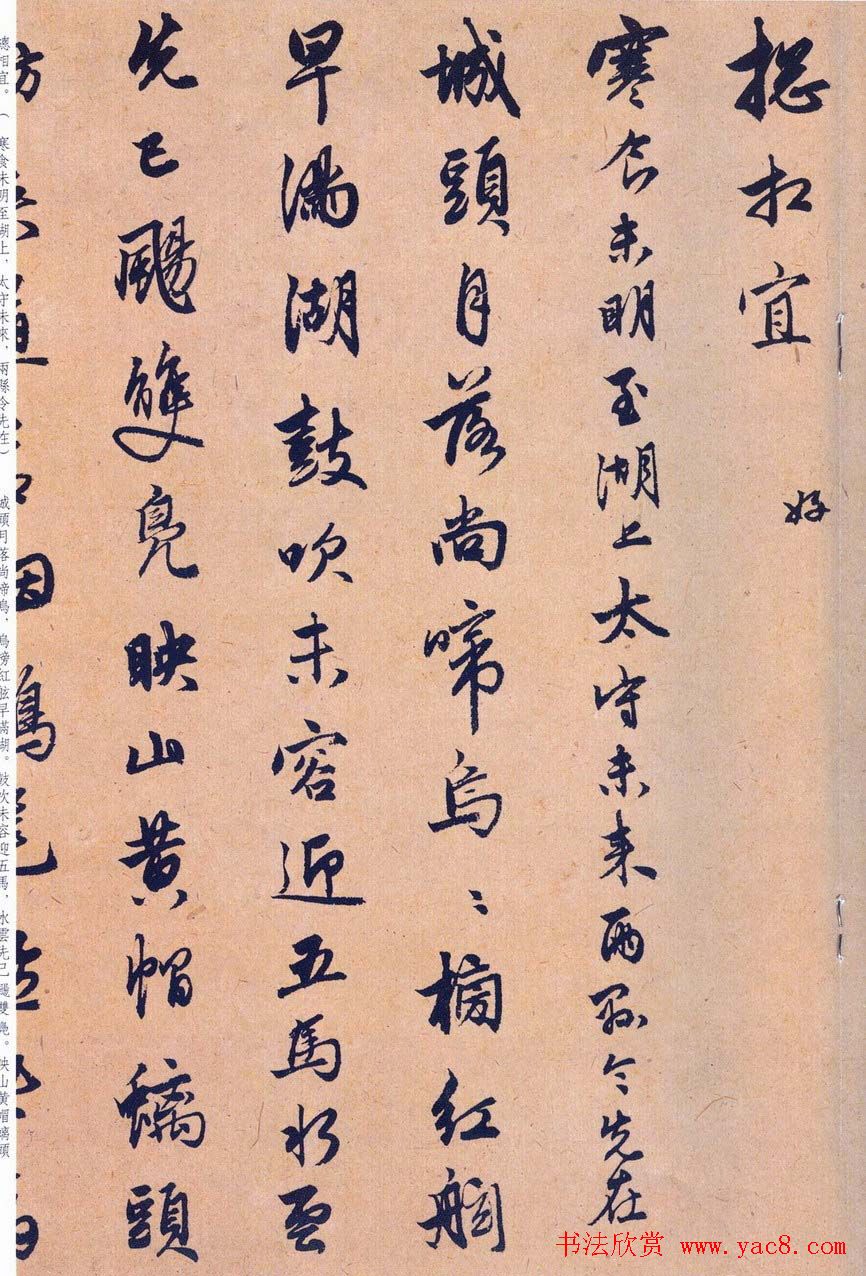 揔相宜
好
寒食未明至湖上太守未来兩縣令先在
城頭月落尚啼烏〻榜紅舷
早滿湖鼓吹未容迎五馬水雲
先已颺雙鳧映山黄帽螭頭
總相宜。（寒食未明至湖上，太守未來，兩縣令先在） 城頭月落尚啼烏，烏榜紅舷早滿湖。鼓吹未容迎五馬，水雲先已颺雙鳧。映山黄帽螭頭
书法欣赏 www.yac8.com